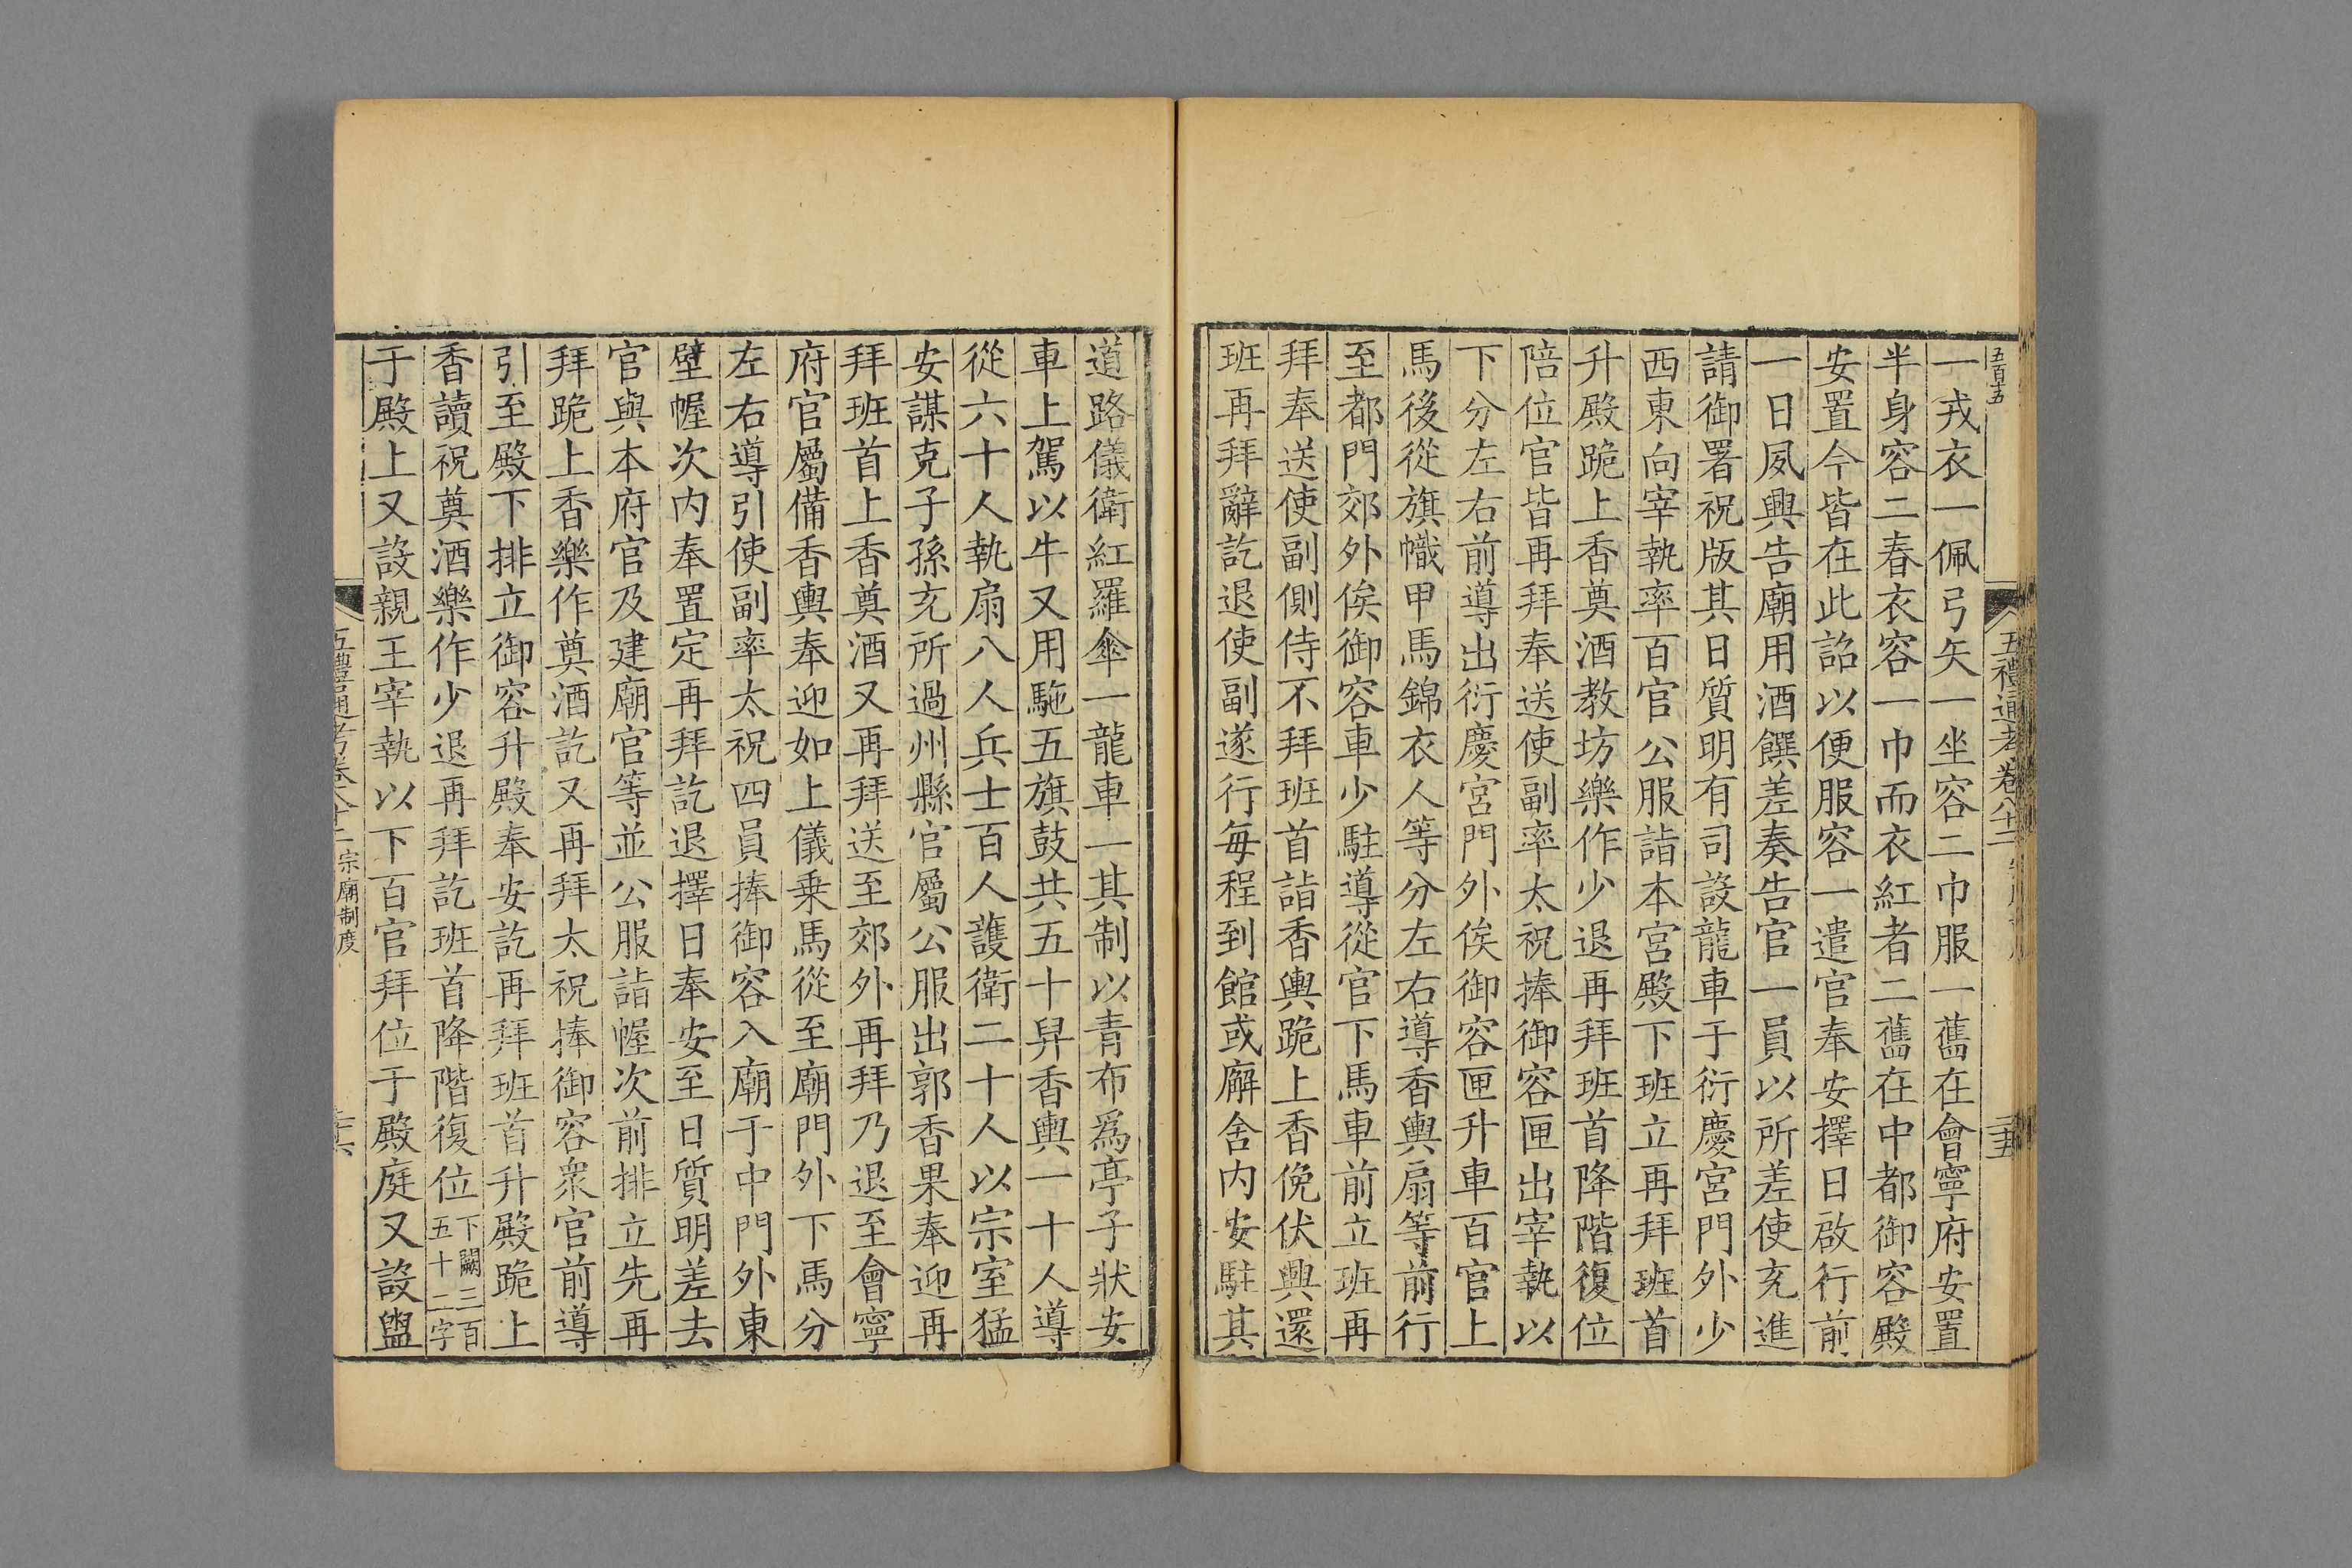 五百十五
五禮通考卷八十二
一戎衣一佩弓矢一坐容二巾服一舊在會寧府安置
半身容二春衣容一巾而衣紅者二舊在中都御容殿
安置今皆在此詔以便服容一遣官奉安擇日啟行前
一日夙興告廟用酒饌差奏告官一員以所差使充進
請御署祝版其日質明有司設龍車于衍慶宮門外少
西東向宰執率百官公服詣本宮殿下班立再拜班首
升殿跪上香奠酒教坊樂作少退再拜班首降階復位
陪位官皆再拜奉送使副率太祝捧御容匣出宰執以
下分左右前導出衍慶宮門外俟御容匣升車百官上
馬後從旗幟甲馬錦衣人等分左右導香輿扇等前行
至都門郊外俟御容車少駐導從官下馬車前立班再
拜奉送使副側侍不拜班首詣香輿跪上香俛伏興還
班再拜辭訖退使副遂行每程到館或廨舍内安駐其
道路儀衛紅羅傘一龍車一其制以青布爲亭子狀安
車上駕以牛又用駞五旗鼓共五十舁香輿一十人導
從六十人執扇八人兵士百人護衛二十人以宗室猛
安謀克子孫充所過州縣官屬公服出郭香果奉迎再
拜班首上香奠酒又再拜送至郊外再拜乃退至會寧
府官屬備香輿奉迎如上儀乗馬從至廟門外下馬分
左右導引使副率太祝四員捧御容入廟于中門外東
壁幄次内奉置定再拜訖退擇日奉安至日質明差去
官與本府官及建廟官等並公服詣幄次前排立先再
拜跪上香樂作奠酒訖又再拜太祝捧御容衆官前導
引至殿下排立御容升殿奉安訖再拜班首升殿跪上
香讀祝奠酒樂作少退再拜訖班首降階復位下闕三百五十二字
于殿上又設親王宰執以下百官拜位于殿庭又設盥
五禮通考卷八十二 宗廟制度